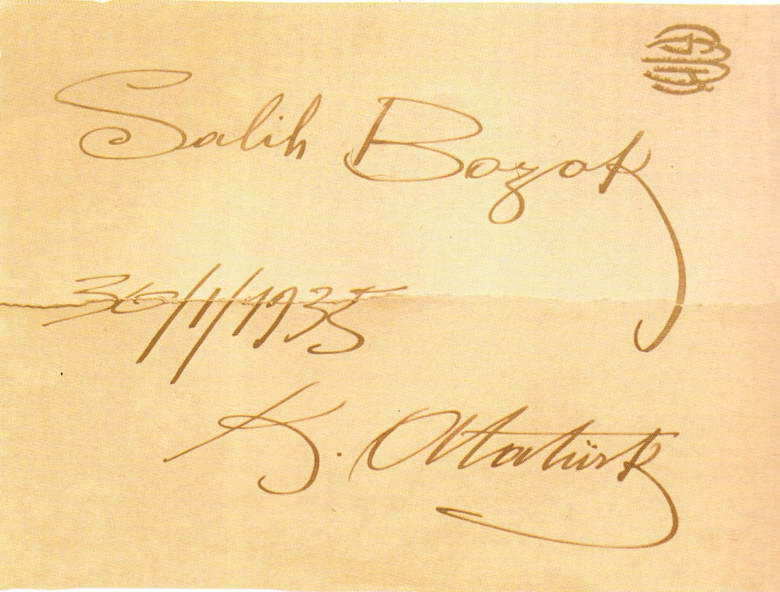 Salih Bozok
30/1/1935
K. Atatürk